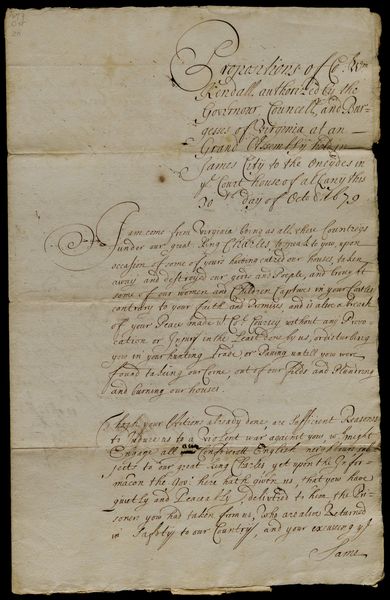 Propositions of Col. Wm
Kendall, authorized by the
Governour, Councell, and Bur-
gesses of Virginia at an
Grand Assembly held in
James City to the Oneydes in
ye Court house of albany this
30th day of Octobr 1679
I am come from Virginia being as all these Countreys
under our great King Charles, to speake to you upon
occasion of some of yours haveing entred our houses, taken
away and destroyed our goods and People, and brought
some of our women and Children Captives in your Castles
contrary to your faith and Promises, and is also a breach
of your Peace made wt Col. Coursey without any Provo-
cation or Injury in the Least done by us, or disturbing
you in your hunting trade, or Passing untill you were
found takeing our Corne, out of our fields and Plundring
and burning our houses.
Though your Actions already done, are Sufficient Reasons
to Induce us to a Violent war against you, wh might
Engage all our Confederate English neighbours sub-
jects to our great King Charles, yet upon the Infor-
macon the Govr here hath given us, that you have
quietly and Peaceably delivered to him the Pri-
soners you had taken from us, who are alive Returned
in Safety to our Country, and your excuseing ye
Same